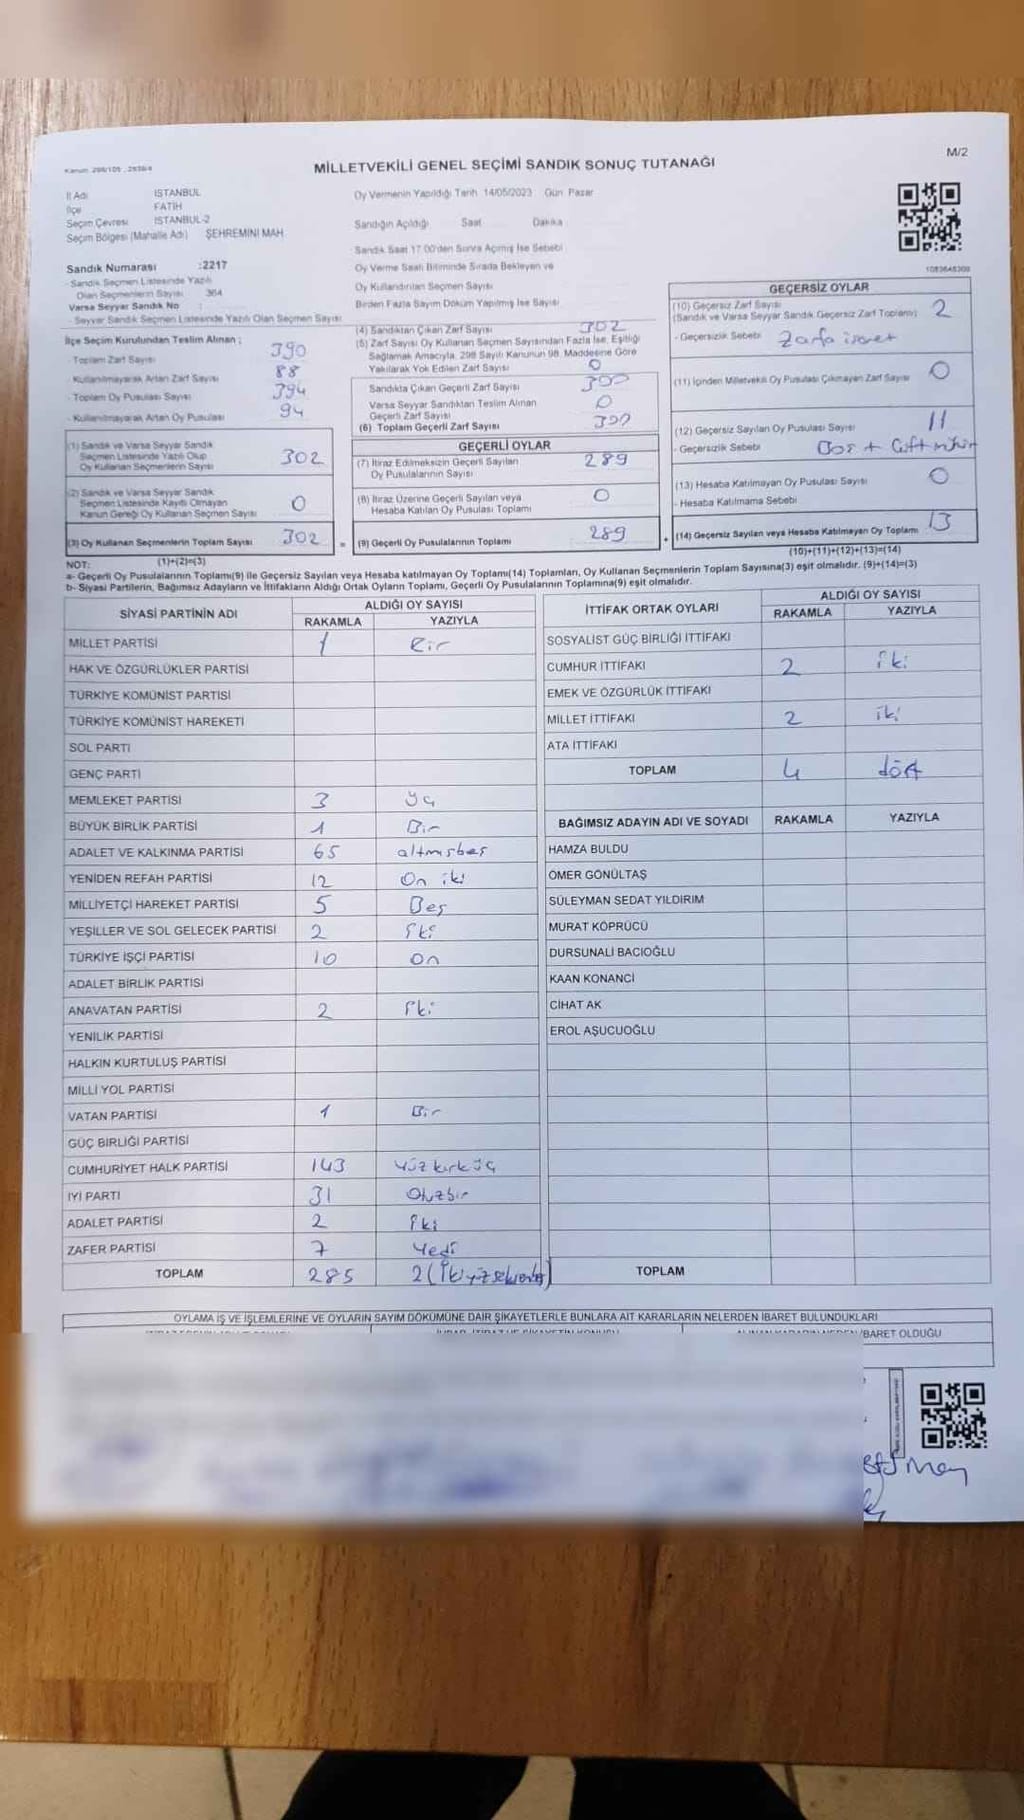 M/2
Kanun: 298/105 , 2839/4
MİLLETVEKİLİ GENEL SEÇİMİ SANDIK SONUÇ TUTANAĞI
İl Adı İSTANBUL
İlçe FATİH
Seçim Çevresi İSTANBUL-2
Seçim Bölgesi (Mahalle Adı) ŞEHREMİNİ MAH
Oy Vermenin Yapıldığı Tarih 14/05/2023 Gün Pazar
Sandığın Açıldığı Saat Dakika
Sandık Saat 17.00'den Sonra Açılmış İse Sebebi
Oy Verme Saati Bitiminde Sırada Bekleyen ve
Oy Kullandırılan Seçmen Sayısı
Birden Fazla Sayım Döküm Yapılmış İse Sayısı
Sandık Numarası :2217
- Sandık Seçmen Listesinde Yazılı
Olan Seçmenlerin Sayısı 384
Varsa Seyyar Sandık No :
- Seyyar Sandık Seçmen Listesinde Yazılı Olan Seçmen Sayısı
İlçe Seçim Kurulundan Teslim Alınan ;
- Toplam Zarf Sayısı 390
- Kullanılmayarak Artan Zarf Sayısı 88
- Toplam Oy Pusulası Sayısı 394
- Kullanılmayarak Artan Oy Pusulası 94
(1) Sandık ve Varsa Seyyar Sandık
Seçmen Listesinde Yazılı Olup
Oy Kullanan Seçmenlerin Sayısı 302
(2) Sandık ve Varsa Seyyar Sandık
Seçmen Listesinde Kayıtlı Olmayan
Kanun Gereği Oy Kullanan Seçmen Sayısı 0
(3) Oy Kullanan Seçmenlerin Toplam Sayısı 302
(1)+(2)=(3)
(4) Sandıktan Çıkan Zarf Sayısı 302
(5) Zarf Sayısı Oy Kullanan Seçmen Sayısından Fazla İse, Eşitliği
Sağlamak Amacıyla, 298 Sayılı Kanunun 98. Maddesine Göre
Yakılarak Yok Edilen Zarf Sayısı 0
Sandıkta Çıkan Geçerli Zarf Sayısı 300
Varsa Seyyar Sandıktan Teslim Alınan
Geçerli Zarf Sayısı 0
(6) Toplam Geçerli Zarf Sayısı 300
GEÇERLİ OYLAR
(7) İtiraz Edilmeksizin Geçerli Sayılan
Oy Pusulasının Sayısı 289
(8) İtiraz Üzerine Geçerli Sayılan veya
Hesaba Katılan Oy Pusulası Toplamı 0
= (9) Geçerli Oy Pusulalarının Toplamı 289
1083645309
GEÇERSİZ OYLAR
(10) Geçersiz Zarf Sayısı
(Sandık ve Varsa Seyyar Sandık Geçersiz Zarf Toplamı) 2
- Geçersizlik Sebebi Zarfa işaret
(11) İçinden Milletvekili Oy Pusulası Çıkmayan Zarf Sayısı 0
(12) Geçersiz Sayılan Oy Pusulası Sayısı 11
- Geçersizlik Sebebi Boş + Çift mühür
(13) Hesaba Katılmayan Oy Pusulası Sayısı 0
- Hesaba Katılmama Sebebi
+ (14) Geçersiz Sayılan veya Hesaba Katılmayan Oy Toplamı 13
(10)+(11)+(12)+(13)=(14)
NOT:
a- Geçerli Oy Pusulalarının Toplamı(9) ile Geçersiz Sayılan veya Hesaba katılmayan Oy Toplamı(14) Toplamları, Oy Kullanan Seçmenlerin Toplam Sayısına(3) eşit olmalıdır. (9)+(14)=(3)
b- Siyasi Partilerin, Bağımsız Adayların ve İttifakların Aldığı Ortak Oyların Toplamı, Geçerli Oy Pusulalarının Toplamına(9) eşit olmalıdır.
SİYASİ PARTİNİN ADI ALDIĞI OY SAYISI
RAKAMLA YAZIYLA
MİLLET PARTİSİ 1 Bir
HAK VE ÖZGÜRLÜKLER PARTİSİ
TÜRKİYE KOMÜNİST PARTİSİ
TÜRKİYE KOMÜNİST HAREKETİ
SOL PARTİ
GENÇ PARTİ
MEMLEKET PARTİSİ 3 üç
BÜYÜK BİRLİK PARTİSİ 1 Bir
ADALET VE KALKINMA PARTİSİ 65 altmışbeş
YENİDEN REFAH PARTİSİ 12 On iki
MİLLİYETÇİ HAREKET PARTİSİ 5 Beş
YEŞİLLER VE SOL GELECEK PARTİSİ 2 İki
TÜRKİYE İŞÇİ PARTİSİ 10 On
ADALET BİRLİK PARTİSİ
ANAVATAN PARTİSİ 2 İki
YENİLİK PARTİSİ
HALKIN KURTULUŞ PARTİSİ
MİLLİ YOL PARTİSİ
VATAN PARTİSİ 1 Bir
GÜÇ BİRLİĞİ PARTİSİ
CUMHURİYET HALK PARTİSİ 143 Yüz kırk üç
İYİ PARTİ 31 Otuzbir
ADALET PARTİSİ 2 İki
ZAFER PARTİSİ 7 Yedi
TOPLAM 285 2 (İkiyüzseksenbeş)
İTTİFAK ORTAK OYLARI ALDIĞI OY SAYISI
RAKAMLA YAZIYLA
SOSYALİST GÜÇ BİRLİĞİ İTTİFAKI
CUMHUR İTTİFAKI 2 iki
EMEK VE ÖZGÜRLÜK İTTİFAKI
MİLLET İTTİFAKI 2 iki
ATA İTTİFAKI
TOPLAM 4 dört
BAĞIMSIZ ADAYIN ADI VE SOYADI RAKAMLA YAZIYLA
HAMZA BULDU
ÖMER GÖNÜLTAŞ
SÜLEYMAN SEDAT YILDIRIM
MURAT KÖPRÜCÜ
DURSUNALİ BACIOĞLU
KAAN KONANCİ
CİHAT AK
EROL AŞUCUOĞLU
TOPLAM
OYLAMA İŞ VE İŞLEMLERİNE VE OYLARIN SAYIM DÖKÜMÜNE DAİR ŞİKAYETLERLE BUNLARA AİT KARARLARIN NELERDEN İBARET BULUNDUKLARI
İBARET OLDUĞU